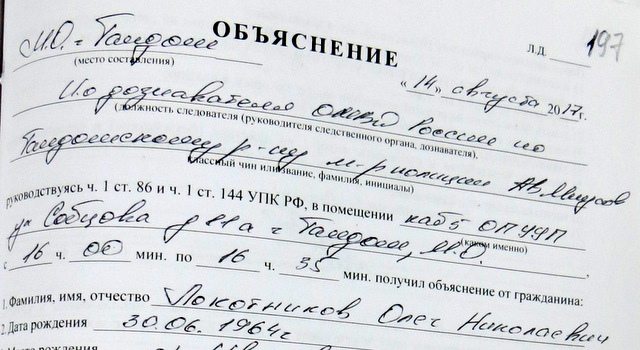 ОБЪЯСНЕНИЕ
Л.Д. 197
М.О. г. Талдом
(место составления)
«14» августа 2017г.
И.о дознавателя ОМВД России по
(должность следователя (руководителя следственного органа, дознавателя),
Талдомскому р-ну м-р полиции А.В.
классный чин или звание, фамилия, инициалы)
руководствуясь ч. 1 ст. 86 и ч. 1 ст. 144 УПК РФ, в помещении каб 5 ОПУУП
(каком именно)
ул Собцова д 11а г Талдом, М.О.
с 16 ч. 00 мин. по 16 ч. 35 мин. получил объяснение от гражданина:
1. Фамилия, имя, отчество Локотников Олег Николаевич
2. Дата рождения 30.06.1964г